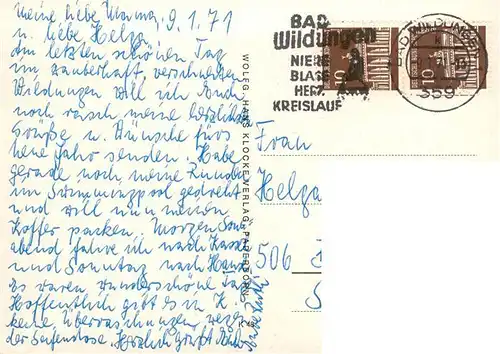 Meine liebe Mama, 9.1.71
u. liebe Helga
Am letzten schönen Tag
im zauberhaft verschneiten
Wildungen will ich Euch
noch rasch meine herzlichen
Grüße u. Wünsche fürs
neue Jahr senden. Habe
gerade noch meine Runden
im Swimmingpool gedreht
und will nun meinen
Koffer packen. Morgen Sonn
abend fahre ich nach Kassel
und Sonntag nach Hause
es waren wunderschöne Tage
Hoffentlich gibt es in H.
keine Überraschungen wegen
der Seifendose. Herzlich grüßt Euch
WOLFG. HANS KLOCKE VERLAG, PADERBORN
BAD
Wildungen
NIERE
BLASE
HERZ
KREISLAUF
BAD WILDUNGEN
359
10
10
Frau
Helga
506